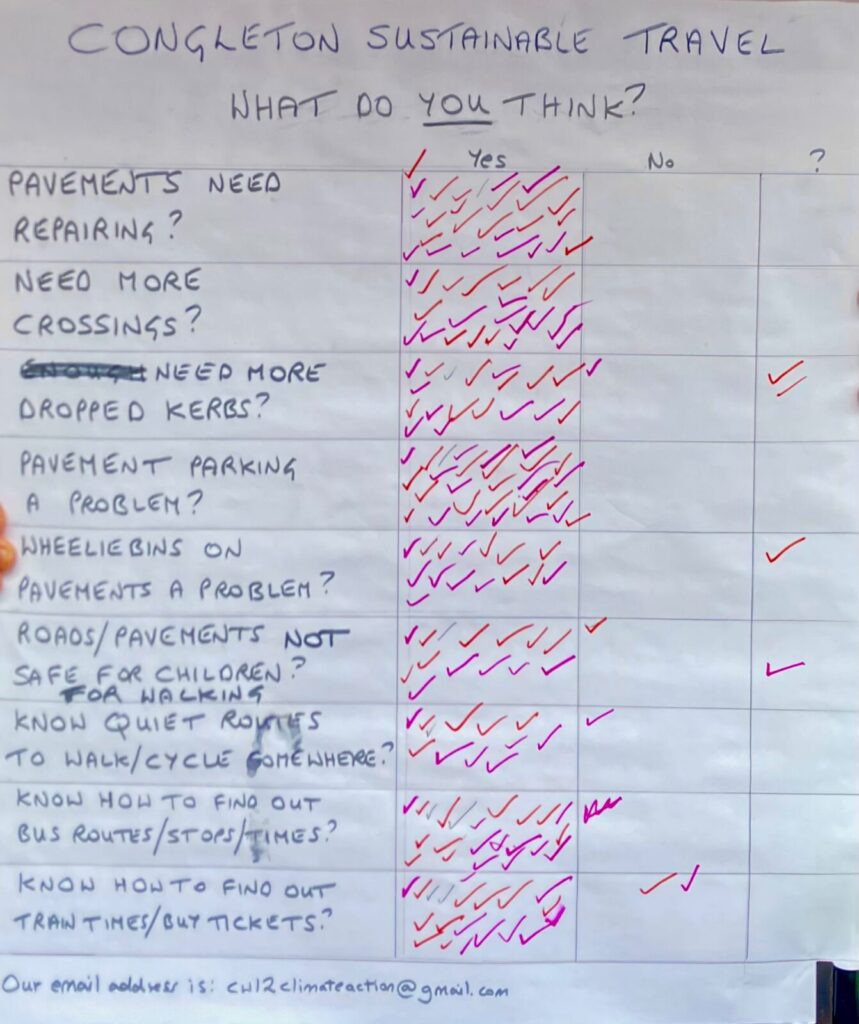 CONGLETON SUSTAINABLE TRAVEL
WHAT DO YOU THINK?
Yes No ?
PAVEMENTS NEED
REPAIRING?
NEED MORE
CROSSINGS?
NEED MORE
DROPPED KERBS?
PAVEMENT PARKING
A PROBLEM?
WHEELIE BINS ON
PAVEMENTS A PROBLEM?
ROADS/PAVEMENTS NOT
SAFE FOR CHILDREN?
FOR WALKING
KNOW QUIET ROUTES
TO WALK/CYCLE SOMEWHERE?
KNOW HOW TO FIND OUT
BUS ROUTES/STOPS/TIMES?
KNOW HOW TO FIND OUT
TRAIN TIMES/BUY TICKETS?
Our email address is: cw12climateaction@gmail.com